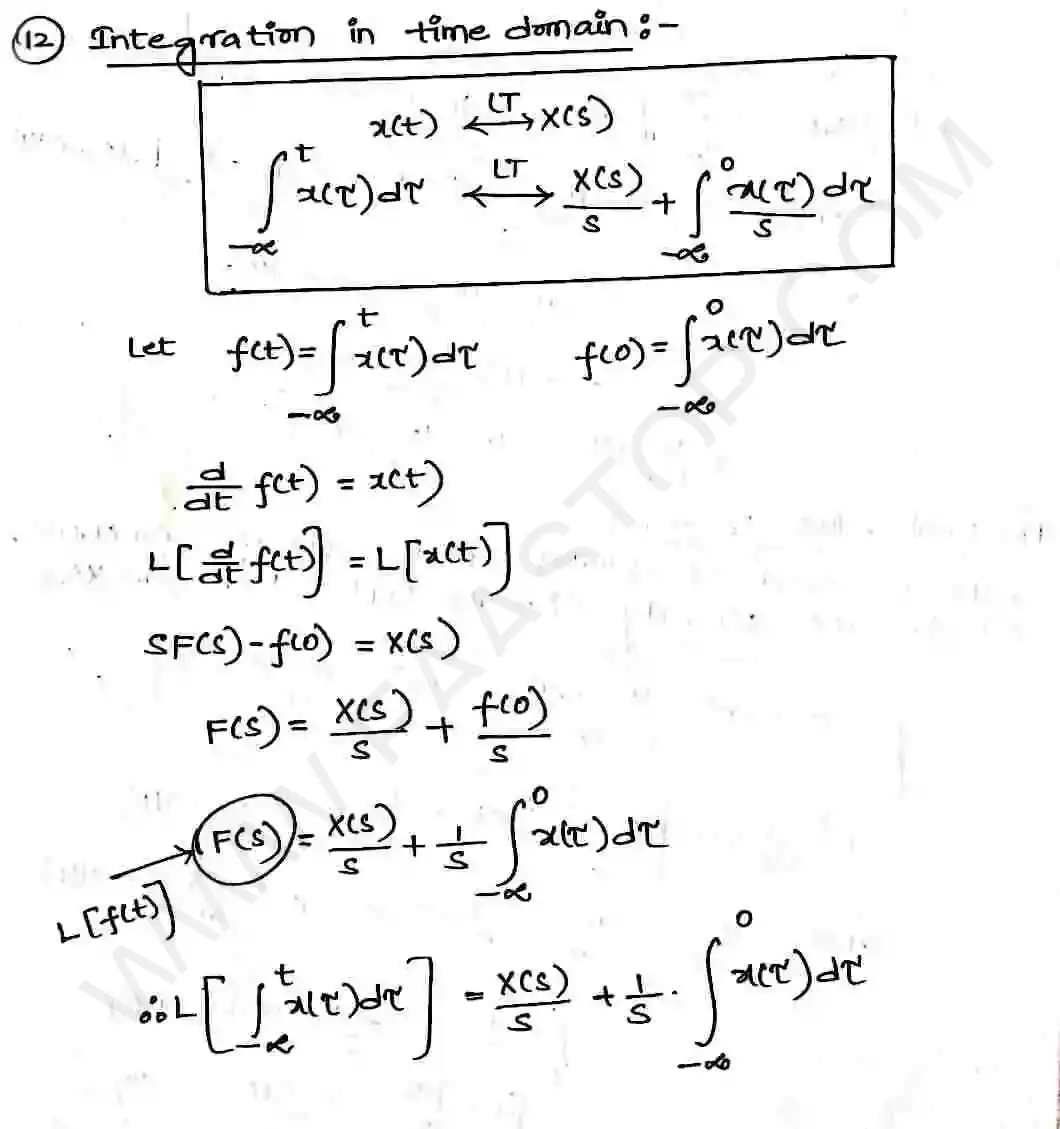 (12) Integration in time domain :-
x(t) ⟷LT X(s)
∫_{-∞}^{t} x(τ) dτ ⟷LT X(s)/s + ∫_{-∞}^{0} x(τ)/s dτ
Let f(t) = ∫_{-∞}^{t} x(τ) dτ f(0) = ∫_{-∞}^{0} x(τ) dτ
d/dt f(t) = x(t)
L[d/dt f(t)] = L[x(t)]
SF(S) - f(0) = X(S)
F(S) = X(S)/S + f(0)/S
F(S) = X(S)/S + 1/S ∫_{-∞}^{0} x(τ) dτ
L[f(t)]
∴ L[∫_{-∞}^{t} x(τ) dτ] = X(S)/S + 1/S · ∫_{-∞}^{0} x(τ) dτ
WWW.FAASTOP.COM